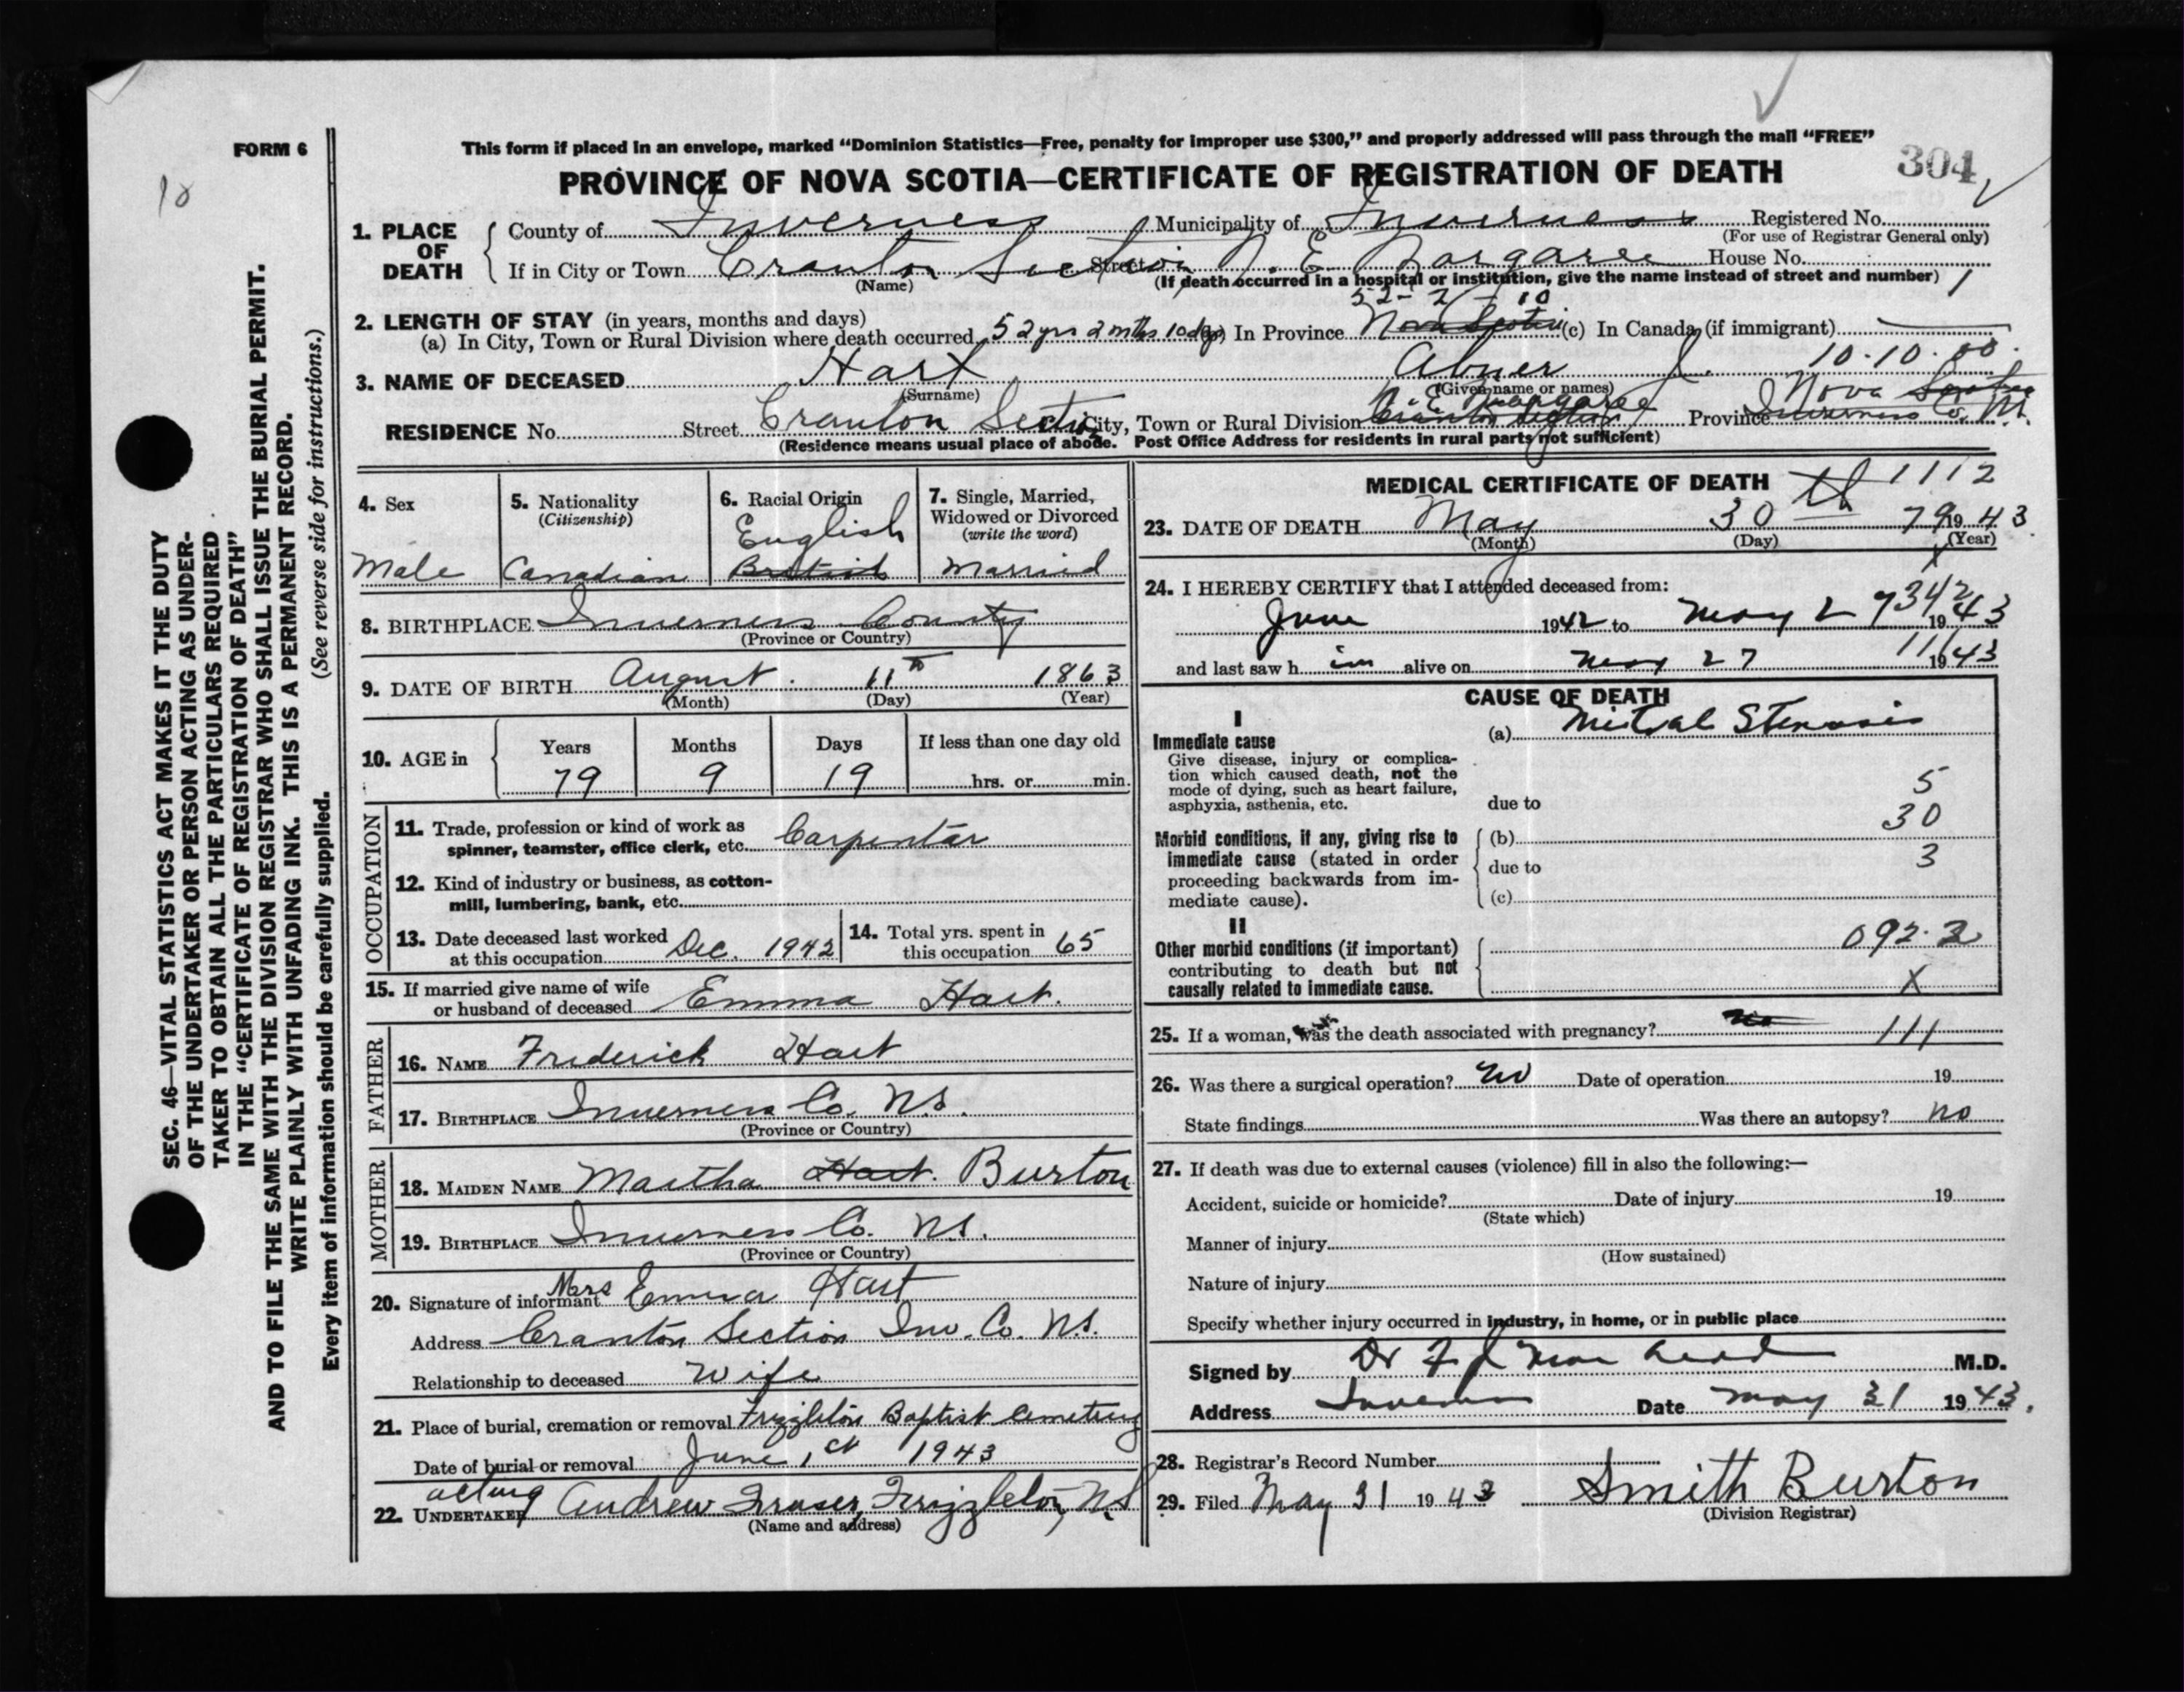 FORM 6
This form if placed in an envelope, marked “Dominion Statistics—Free, penalty for improper use $300,” and properly addressed will pass through the mail “FREE”
304
PROVINCE OF NOVA SCOTIA—CERTIFICATE OF REGISTRATION OF DEATH
18
1. PLACE OF DEATH
County of Inverness Municipality of Inverness Registered No.
(For use of Registrar General only)
If in City or Town Cranton Section Street N. E. Margaree House No.
(Name) (If death occurred in a hospital or institution, give the name instead of street and number) 1
52-2-10
2. LENGTH OF STAY (in years, months and days)
(a) In City, Town or Rural Division where death occurred 52 yrs 2 mths 10 dys In Province Nova Scotia (c) In Canada (if immigrant)
10-10-00
3. NAME OF DECEASED Hart Abner J.
(Surname) (Given name or names)
N. E. Margaree Nova Scotia
RESIDENCE No. Street Cranton Section City, Town or Rural Division Cranton Section Province Inverness Co. N.S.
(Residence means usual place of abode. Post Office Address for residents in rural parts not sufficient)
4. Sex
Male
5. Nationality
(Citizenship)
Canadian
6. Racial Origin
English
British
7. Single, Married, Widowed or Divorced
(write the word)
Married
8. BIRTHPLACE Inverness County
(Province or Country)
9. DATE OF BIRTH August 11th 1863
(Month) (Day) (Year)
10. AGE in Years Months Days If less than one day old
79 9 19 hrs. or min.
OCCUPATION
11. Trade, profession or kind of work as
spinner, teamster, office clerk, etc. Carpentar
12. Kind of industry or business, as cotton-
mill, lumbering, bank, etc.
13. Date deceased last worked
at this occupation Dec. 1942
14. Total yrs. spent in
this occupation 65
15. If married give name of wife
or husband of deceased Emma Hart.
FATHER
16. NAME Frederick Hart
17. BIRTHPLACE Inverness Co. N.S.
(Province or Country)
MOTHER
18. MAIDEN NAME Martha Hart. Burton
19. BIRTHPLACE Inverness Co. N.S.
(Province or Country)
20. Signature of informant Mrs Emma Hart
Address Cranton Section Inv. Co. N.S.
Relationship to deceased Wife
21. Place of burial, cremation or removal Frizzleton Baptist Cemetery
Date of burial or removal June 1st 1943
acting
22. UNDERTAKER Andrew Fraser, Frizzleton, N.S.
(Name and address)
MEDICAL CERTIFICATE OF DEATH 1112
23. DATE OF DEATH May 30th 79 1943
(Month) (Day) (Year)
x
24. I HEREBY CERTIFY that I attended deceased from:
342
June 1942 to May 27 1943
and last saw him alive on May 27 1943
11
CAUSE OF DEATH
I
Immediate cause
Give disease, injury or complica-
tion which caused death, not the
mode of dying, such as heart failure,
asphyxia, asthenia, etc.
(a) Mitral Stenosis
due to
5
30
Morbid conditions, if any, giving rise to
immediate cause (stated in order
proceeding backwards from im-
mediate cause).
(b)
due to
3
(c)
II
Other morbid conditions (if important)
contributing to death but not
causally related to immediate cause.
092.2
X
25. If a woman, was the death associated with pregnancy? no 111
26. Was there a surgical operation? no Date of operation 19
State findings Was there an autopsy? no
27. If death was due to external causes (violence) fill in also the following:—
Accident, suicide or homicide? Date of injury 19
(State which)
Manner of injury
(How sustained)
Nature of injury
Specify whether injury occurred in industry, in home, or in public place
Signed by Dr F J M.D.
Address Inverness Date May 31 1943.
28. Registrar's Record Number
29. Filed May 31 1943 Smith Burton
(Division Registrar)
SEC. 46—VITAL STATISTICS ACT MAKES IT THE DUTY
OF THE UNDERTAKER OR PERSON ACTING AS UNDER-
TAKER TO OBTAIN ALL THE PARTICULARS REQUIRED
IN THE “CERTIFICATE OF REGISTRATION OF DEATH”
AND TO FILE THE SAME WITH THE DIVISION REGISTRAR WHO SHALL ISSUE THE BURIAL PERMIT.
WRITE PLAINLY WITH UNFADING INK. THIS IS A PERMANENT RECORD.
(See reverse side for instructions.)
Every item of information should be carefully supplied.